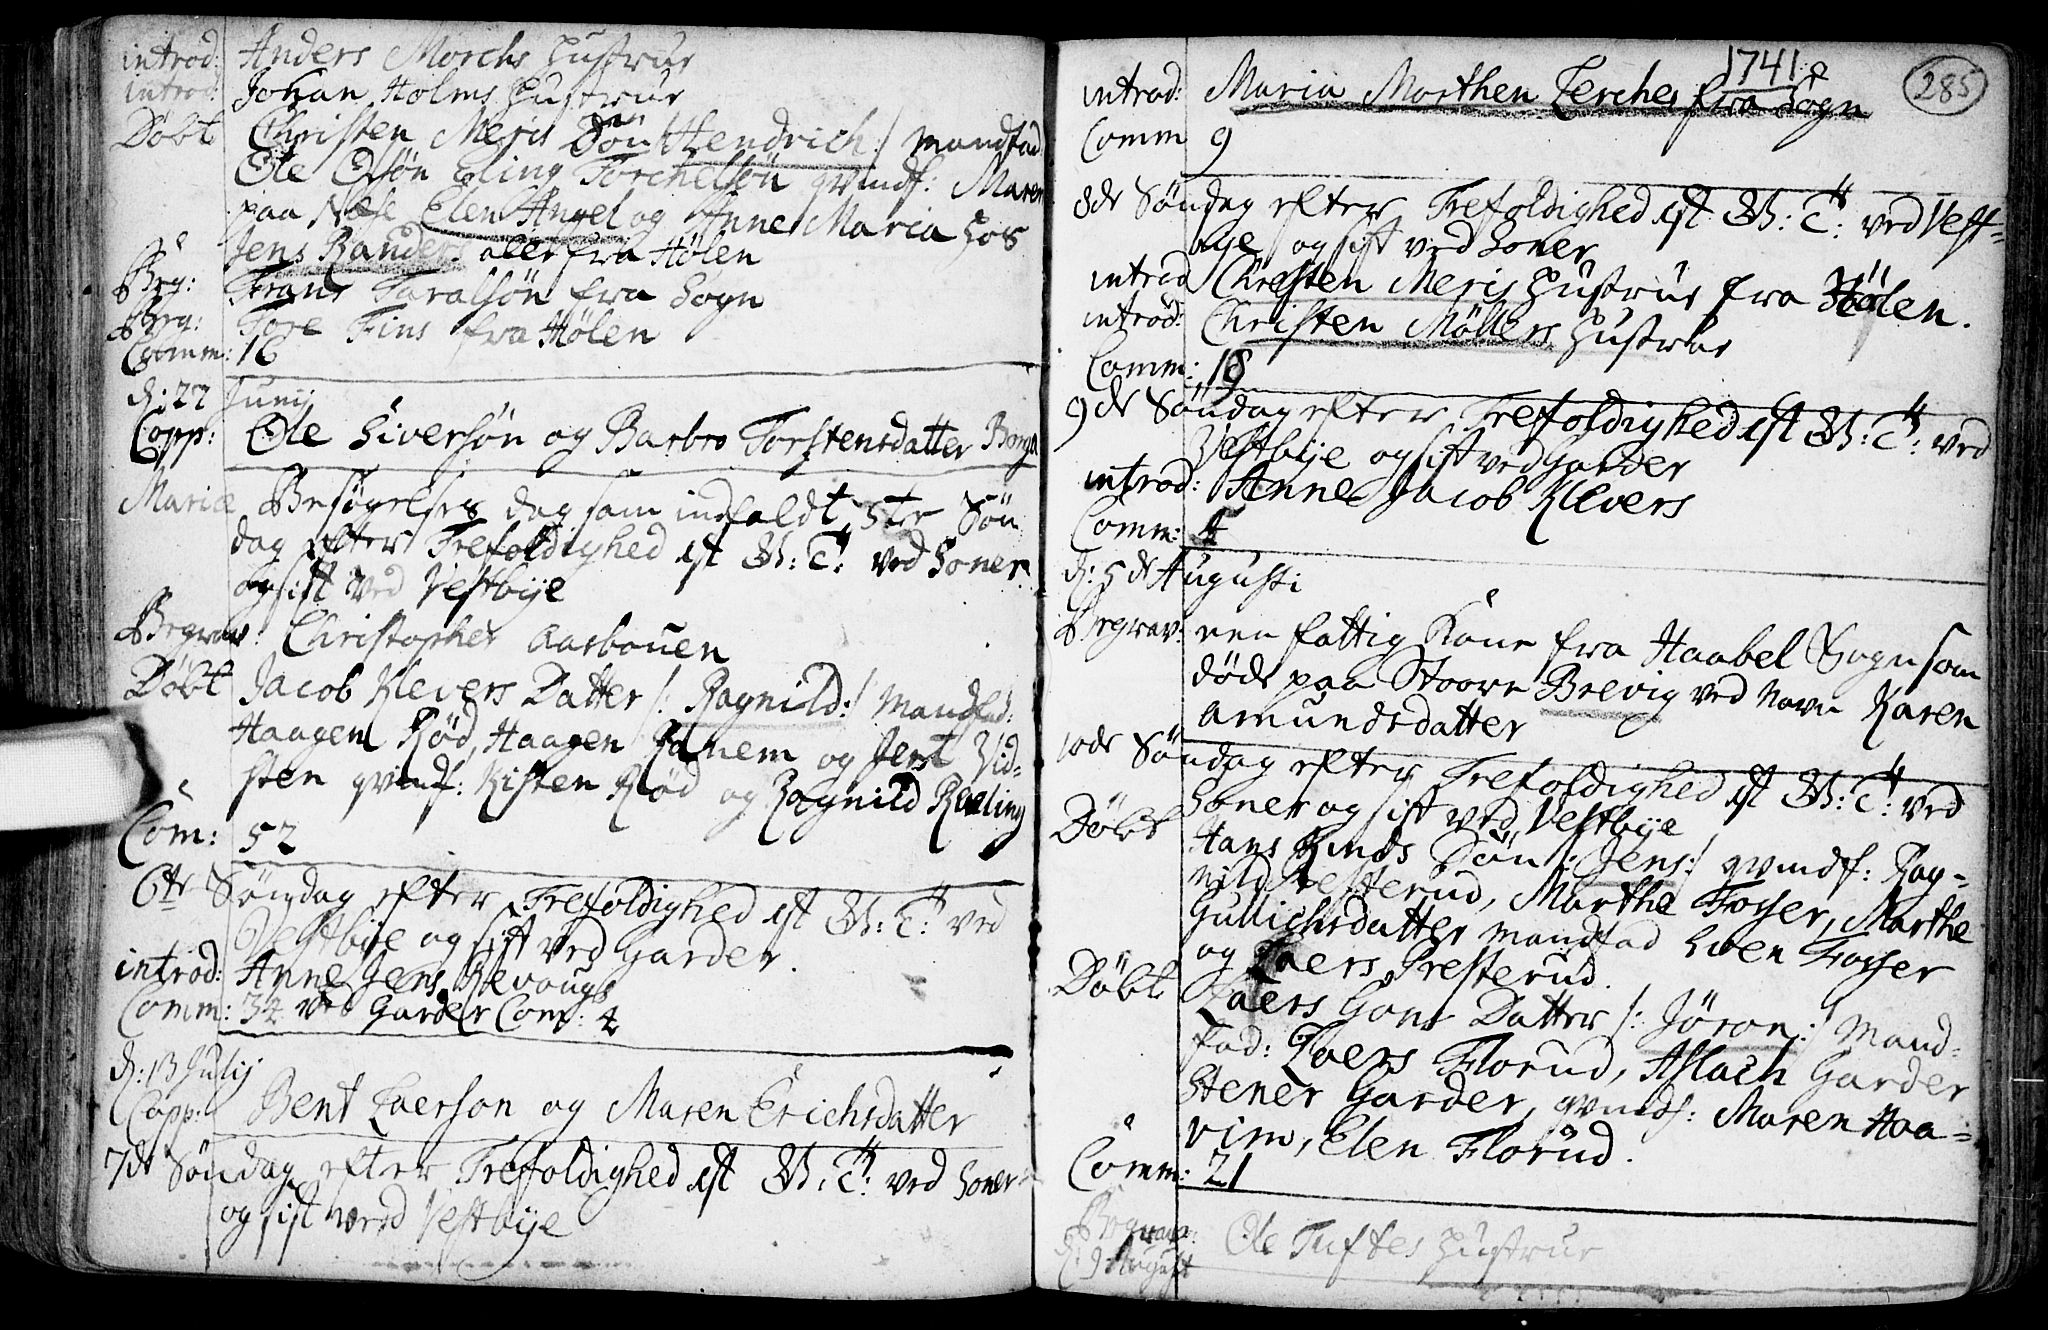 introd: Anders Morchs Hustrue
introd: Johan Holms Hustrue
Döbt Christen Meris Sön Hendrich :/ mandfad
Ole Olsön Eling Torchelsön qvindf: Maren
paa Næse Elen Angel og Anne Maria hos
Jens Rander. alle fra Hölen
Beg: Taralsön fra Sogn
Beg: Tore Fins fra Hölen
Comm: 16
d: 27 Junij
Copp: Ole Siversön og Barbro Torstensdatter
Mariæ Besögelses dag som indfaldt 5te Sön
dag efter Trefoldighed ist ved Soner
og sist ved Vestbÿe
Begrav: Christopher Aasbouen
Döbt Jacob Klevers Datter /: Ragnild :/ Mandfad:
Haagen Röd, Haagen og Jens Vid-
sten qvindf: Kisten Röd og Ragnild
Com: 52
6te Söndag efter Trefoldighed ist ved
Vestbÿe og sist ved Garder.
introd: Anne Jens
Comm: 34 ved Garder Com: 4
d: 13 Julij
Copp: Bent Laerson og Maren Erichsdatter
7de Söndag efter Trefoldighed ist ved Soner
og sist ved Vestbÿe
1741
285
introd: Maria Morthen Lerches fra Sogn
Comm 9
8de Söndag efter Trefoldighed ist ved Vest-
bÿe og sist ved Soner
introd Christen Meris Hustrue fra Hölen.
introd: Christen Möllers Hustrue
Comm: 18
9de Söndag efter Trefoldighed ist ved
Vestbÿe og sist ved Garder
introd: Anne Jacob Klevers
Comm: 4
d: 5de Augusti
Begrav: een fattig Kone fra Haabel Sogn som
döde paa Stoore Brevig ved Navn Karen
Amundsdatter
10de Söndag efter Trefoldighed ist ved
Soner og sist ved Vestbÿe
Döbt Hans Sön /: Jens :/ qvindf: Rag-
nild Presterud, Marthe Fosser, Marthe
Gullichsdatter mandfad Sven Fosser
og Laers Presterud.
Döbt Laers Datter /: Jöran :/ Mand-
fad: Laers Florud, Aslach Garder
Stener Garder, qvindf: Maren Haa-
vim, Elen Florud.
Comm: 21
Begrav: Ole Tuftes Hustrue
d: 9 August